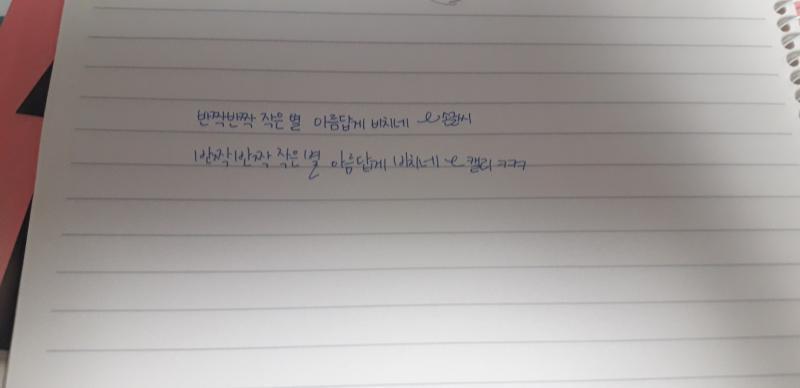 반짝반짝 작은 별 아름답게 비치네 손글씨
반짝반짝 작은 별 아름답게 비치네 캘리 ㅋㅋㅋ